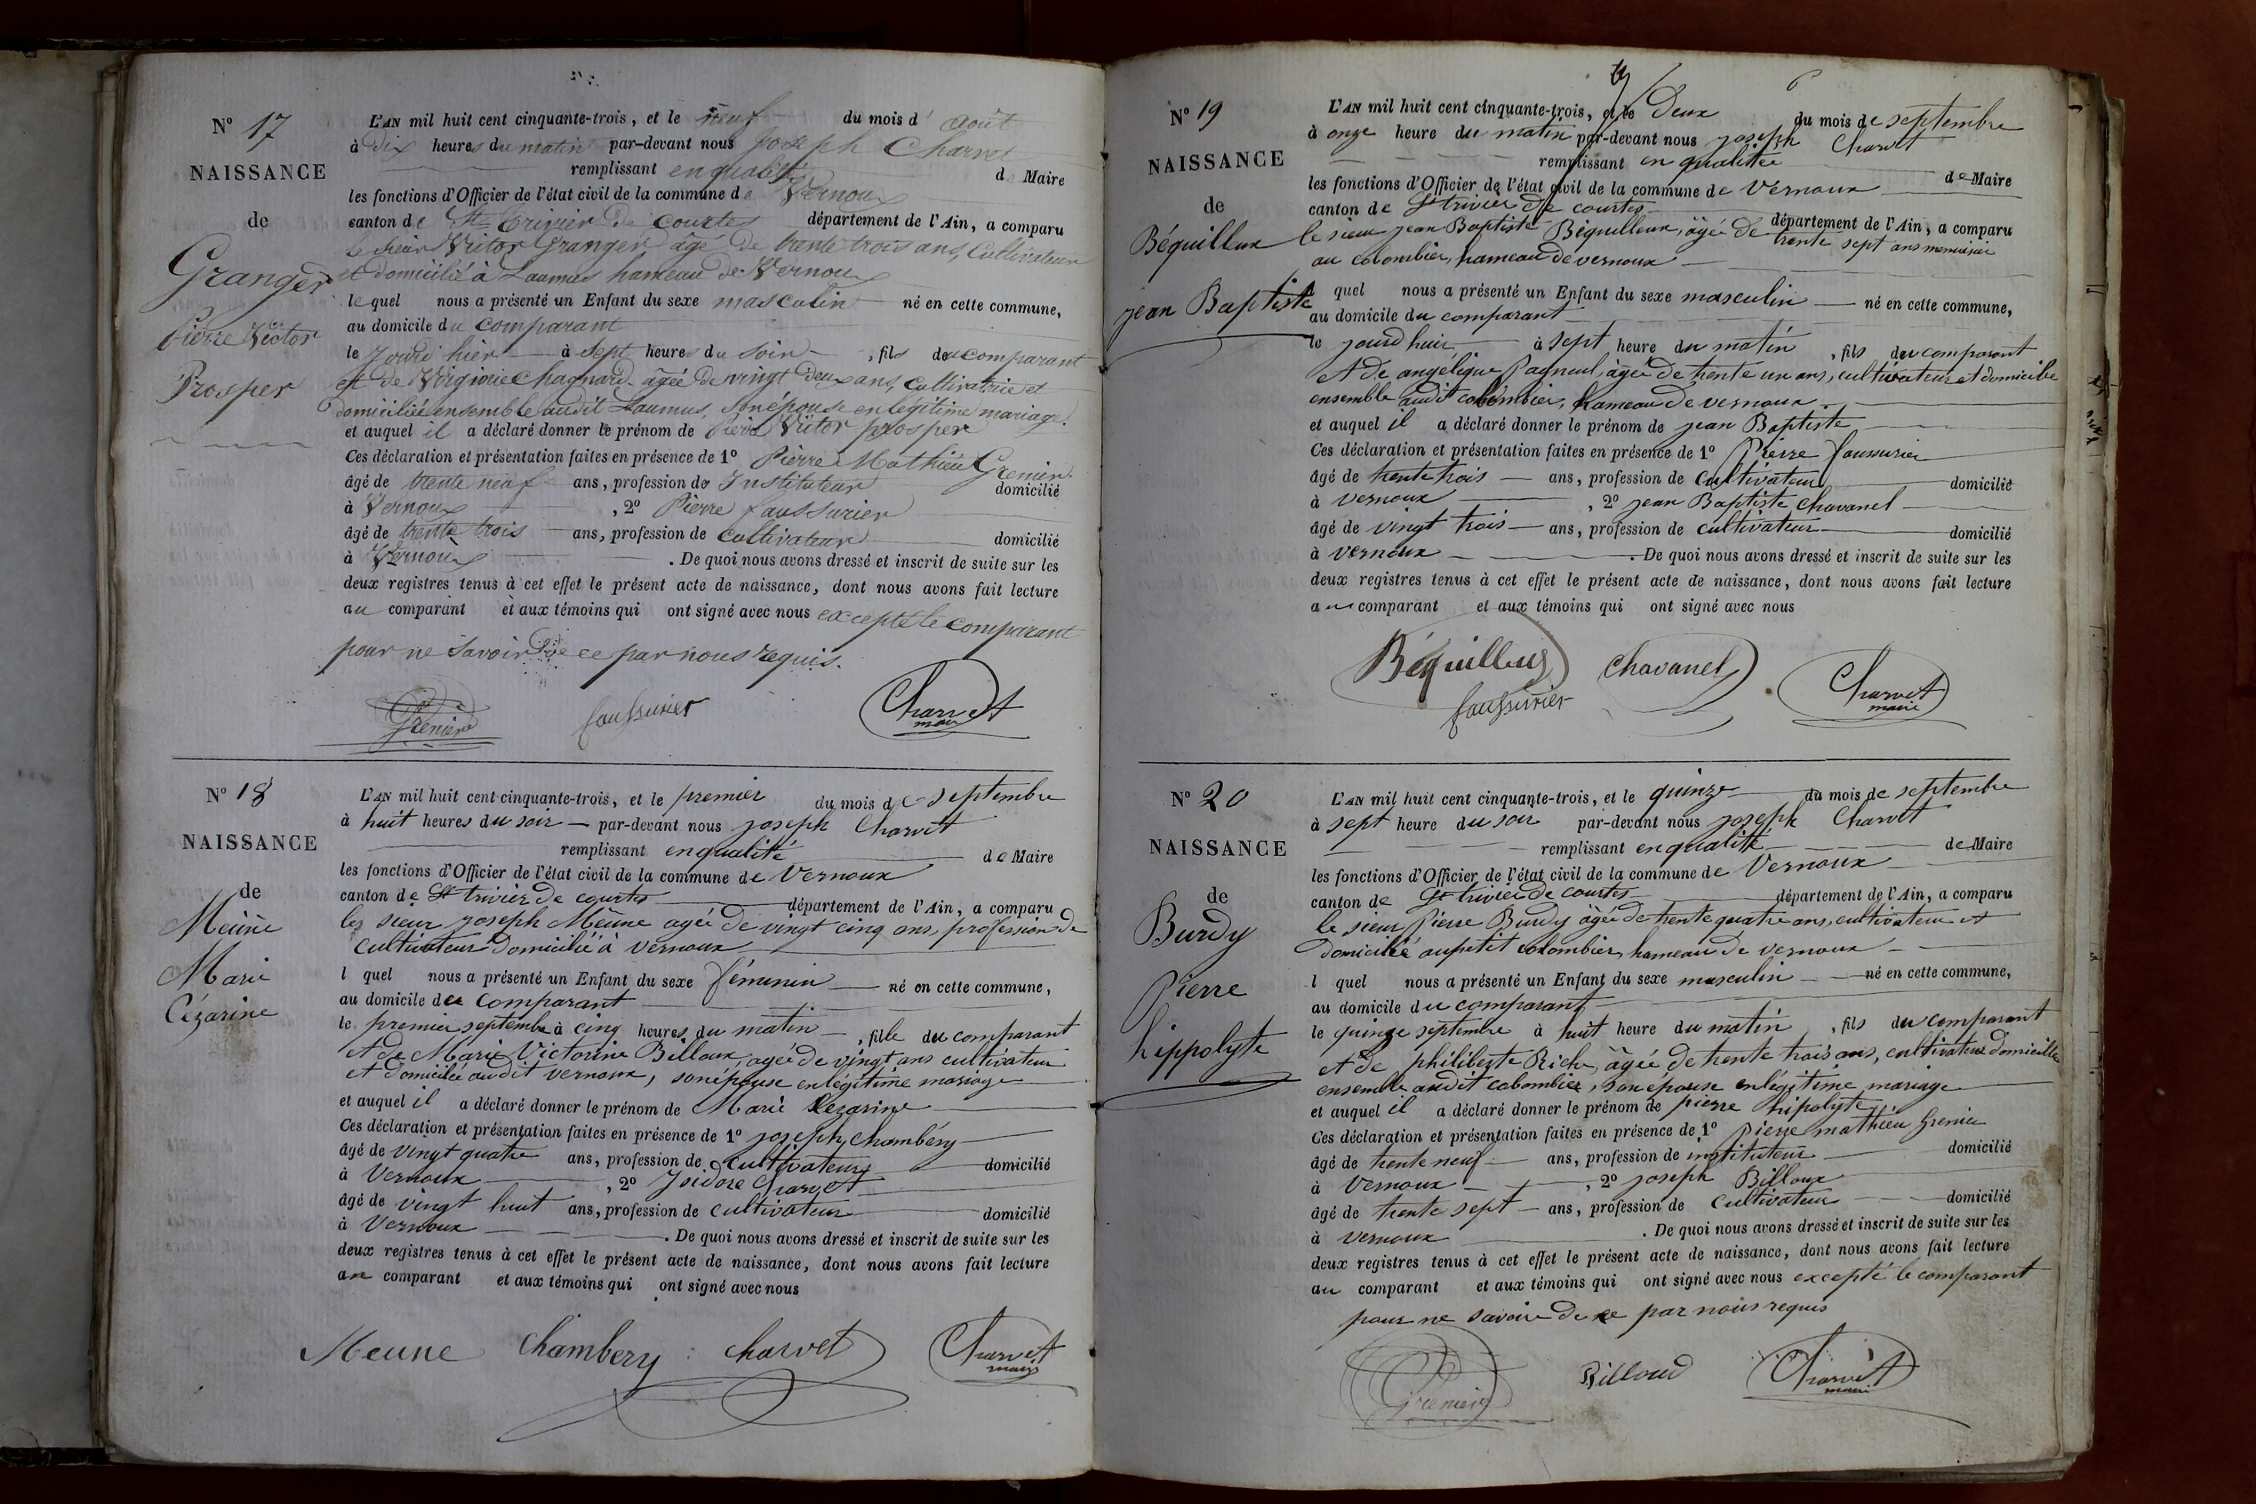 N° 17
NAISSANCE
de
Granger
Pierre Victor
Prosper
L'AN mil huit cent cinquante-trois, et le neuf du mois d'août
à dix heures du matin par-devant nous Joseph Charvet
remplissant en qualité de Maire
les fonctions d'Officier de l'état civil de la commune de Vernoux
canton de St Trivier de courtes département de l'Ain, a comparu
le sieur Victor Granger âgé de trente trois ans, Cultivateur
et domicilié à Laumus hameau de Vernoux
lequel nous a présenté un Enfant du sexe masculin né en cette commune,
au domicile du comparant
le Jourd'hier à sept heures du soir, fils du comparant
et de Virginie Chagnard âgée de vingt deux ans, Cultivatrice et
domiciliée ensemble audit Laumus, son épouse en légitime mariage.
et auquel il a déclaré donner le prénom de Pierre Victor prosper
Ces déclaration et présentation faites en présence de 1° Pierre Mathieu Grenier
âgé de trente neuf ans, profession de Instituteur domicilié
à Vernoux, 2° Pierre faussurier
âgé de trente trois ans, profession de cultivateur domicilié
à Vernoux. De quoi nous avons dressé et inscrit de suite sur les
deux registres tenus à cet effet le présent acte de naissance, dont nous avons fait lecture
au comparant et aux témoins qui ont signé avec nous excepté le comparant
pour ne savoir de ce par nous requis.
Grenier faussurier Charvet
maire
N° 18
NAISSANCE
de
Meune
Marie
Cézarine
L'AN mil huit cent cinquante-trois, et le premier du mois de septembre
à huit heures du soir — par-devant nous joseph Charvet
remplissant en qualité de Maire
les fonctions d'Officier de l'état civil de la commune de Vernoux
canton de St trivier de courtes département de l'Ain, a comparu
le sieur joseph Meune agée de vingt cinq ans, profession de
cultivateur domicilié à Vernoux
l quel nous a présenté un Enfant du sexe féminin — né en cette commune,
au domicile du comparant
le premier septembre à cinq heures du matin —, fille du comparant
et de Marie Victorine Billoux, agée de vingt ans cultivateur
et domicilée audit vernoux, son épouse en légitime mariage
et auquel il a déclaré donner le prénom de Marie Cezarine
Ces déclaration et présentation faites en présence de 1° joseph, Chambéry
âgé de vingt quatre ans, profession de cultivateur domicilié
à Vernoux, 2° Isidore Charvet
âgé de vingt huit ans, profession de cultivateur domicilié
à Vernoux. De quoi nous avons dressé et inscrit de suite sur les
deux registres tenus à cet effet le présent acte de naissance, dont nous avons fait lecture
au comparant et aux témoins qui ont signé avec nous
Meune Chambery charvet Charvet
maire
N° 19
NAISSANCE
de
Béquillux
jean Baptiste
L'AN mil huit cent cinquante-trois, et le Deux du mois de septembre
à onze heure du matin par-devant nous joseph Charvet
remplissant en qualitée de Maire
les fonctions d'Officier de l'état civil de la commune de Vernoux
canton de St trivier de courtes département de l'Ain, a comparu
le sieur jean Baptiste Béquilleux, agée de trente sept ans menuisier
au colombier, hameau de vernoux
l quel nous a présenté un Enfant du sexe masculin — né en cette commune,
au domicile du comparant
le jourd huir à sept heure du matin, fils du comparant
et de angélique Pagneul, agée de trente un ans, cultivateur et domicilée
ensemble audit colombier, hameau de vernoux
et auquel il a déclaré donner le prénom de jean Baptiste
Ces déclaration et présentation faites en présence de 1° Pierre faussurier
âgé de trente trois — ans, profession de Cultivateur domicilié
à vernoux, 2° jean Baptiste Chavanel
âgé de vingt trois — ans, profession de cultivateur domicilié
à vernoux. De quoi nous avons dressé et inscrit de suite sur les
deux registres tenus à cet effet le présent acte de naissance, dont nous avons fait lecture
au comparant et aux témoins qui ont signé avec nous
Béquilleux chavanel Charvet
faussurier maire
N° 20
NAISSANCE
de
Burdy
Pierre
hippolyte
L'AN mil huit cent cinquante-trois, et le quinze du mois de septembre
à sept heure du soir par-devant nous joseph Charvet
remplissant en qualité de Maire
les fonctions d'Officier de l'état civil de la commune de Vernoux
canton de St trivier de courtes département de l'Ain, a comparu
le sieur Pierre Burdy âgée de trente quatre ans, cultivateur et
domicilée au petit colombier, hameau de vernoux
l quel nous a présenté un Enfant du sexe masculin — né en cette commune,
au domicile du comparant
le quinze septembre à huit heure du matin, fils du comparant
et de philiberte Riche, âgée de trente trois ans, cultivateur domicilée
ensemble audit colombier, son épouse en légitime mariage
et auquel il a déclaré donner le prénom de pierre hipolyte
Ces déclaration et présentation faites en présence de 1° Pierre mathieu Grenier
âgé de trente neuf — ans, profession de instituteur domicilié
à Vernoux, 2° joseph Billoux
âgé de trente sept — ans, profession de cultivateur domicilié
à vernoux. De quoi nous avons dressé et inscrit de suite sur les
deux registres tenus à cet effet le présent acte de naissance, dont nous avons fait lecture
au comparant et aux témoins qui ont signé avec nous excepté le comparant
pour ne savoir de ce par nous requis
Grenier Billoud Charvet
maire